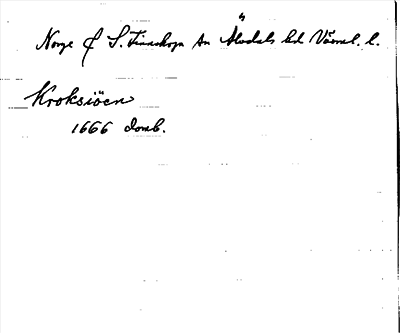 Norge f S. Finnskoga sn Älvdals hd Värml. l.
Kroksiöen
1666 domb.